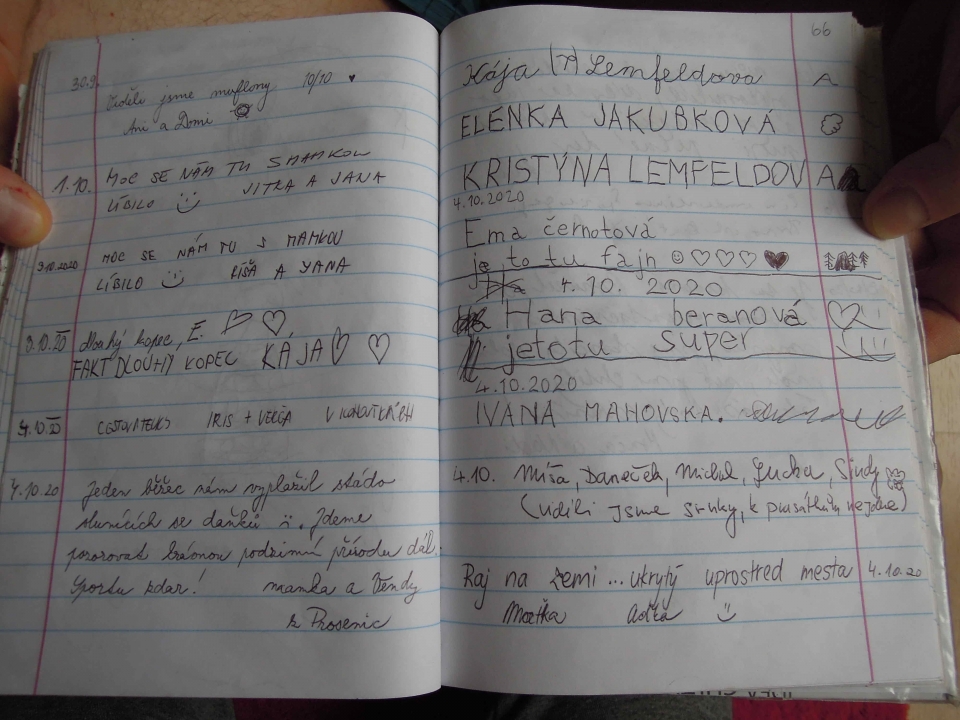 30.9. Viděli jsme muflony 10/10 ♥
Ani a Domi
1.10. MOC SE NÁM TU S MAMKOU
LÍBILO VITRA A JANA
3.10.2020 MOC SE NÁM TU S MAMKOU
LÍBILO RÍŠA A YANA
3.10.20 dlouhý kopec, E. ♡ ♡
FAKT DLOUHÝ KOPEC KÁJA ♡ ♡
4.10.20 IRIS + VERČA
4.10.20 Jeden běžec nám vyplašil stádo
slunících se daňků. Jdeme
pozorovat krásnou podzimní přírodu dál.
Sportu zdar! mamka a Vendy
z Prosenic
66
Kája (7) Lemfeldova A
ELENKA JAKUBKOVÁ
KRISTÝNA LEMFELDOVA
4.10.2020
Ema černotová
je to tu fajn ☺♡♡♡♥
4.10. 2020
Hana beranová ♡
jetotu super
4.10.2020
IVANA MAHOVSKA.
4.10. Míša, Daneček, Michal, Lucka, Sindy
(viděli jsme srnky, k prasátkům nejdne)
Raj na zemi ... ukrytý uprostred mesta 4.10.20